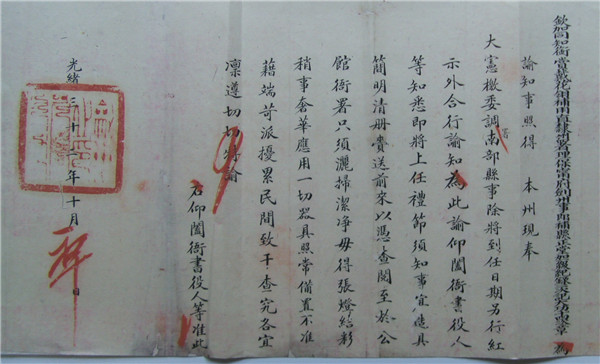 諭知事照得　本州現奉
大憲檄委調署南部縣事除將到任日期另行紅
示外合行諭知為此諭仰闔衙書役人
等知悉即將上任禮節須知事宜造具
簡明清册賫送前來以憑查閱至於公
館衙署只須灑掃潔淨毋得張燈結彩
稍事奢華應用一切器具照常備置不准
藉端苛派擾累民間致干查究各宜
凛遵切切特諭
右仰闔衙書役人等准此
光緒三十年十月　日